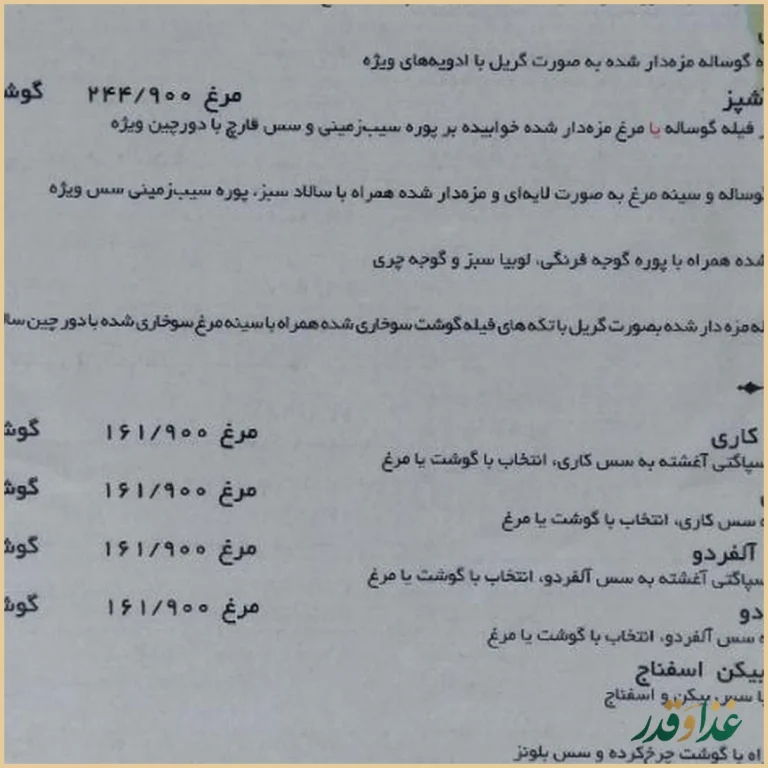 ه گوساله مزه‌دار شده به صورت گریل با ادویه‌های ویژه
مرغ ۲۴۴/۹۰۰
فیله گوساله یا مرغ مزه‌دار شده خوابیده بر پوره سیب‌زمینی و سس قارچ با دورچین ویژه
وساله و سینه مرغ به صورت لایه‌ای و مزه‌دار شده همراه با سالاد سبز، پوره سیب‌زمینی سس ویژه
شده همراه با پوره گوجه فرنگی، لوبیا سبز و گوجه چری
له مزه دار شده بصورت گریل با تکه های فیله گوشت سوخاری شده همراه با سینه مرغ سوخاری شده با دور چین سالا
کاری مرغ ۱۶۱/۹۰۰ گوش
سپاگتی آغشته به سس کاری، انتخاب با گوشت یا مرغ
مرغ ۱۶۱/۹۰۰ گوش
ه سس کاری، انتخاب با گوشت یا مرغ
آلفردو مرغ ۱۶۱/۹۰۰ گوش
سپاگتی آغشته به سس آلفردو، انتخاب با گوشت یا مرغ
دو مرغ ۱۶۱/۹۰۰ گوش
ه سس آلفردو، انتخاب با گوشت یا مرغ
بیکن اسفناج
با سس بیکن و اسفناج
غذا و قدر
راه با گوشت چرخ‌کرده و سس بلونز